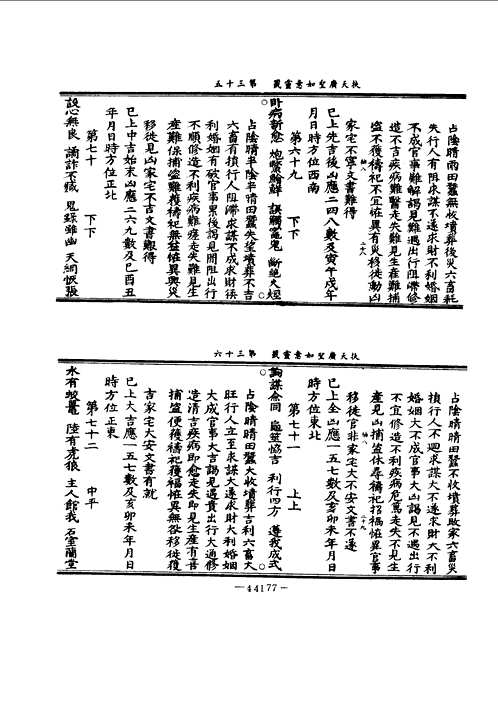 扶天廣聖如意靈籤　第三十五
占陰晴雨田蠶無收墳葬後災六畜耗
失行人有阻求謀不遂求財不利婚姻
不成官事難解謁見難遇出行阻滯修
造不吉疾病難醫走失難見生產難捕
盜不獲禱祀不宜怪異有災移徙動凶
家宅不寧文書難得
已上先吉後凶應二四八數及寅午戌年
月日時方位西南
第六十九　下下
卧病新愈　斷絕大
占陰晴半陰半晴田蠶失望墳葬不吉
六畜有損行人阻滯求謀不成求財俟
利婚姻有破官事累後謁見間阻出行
不順修造不利疾病難痊走失難見生
產難保捕盜難獲禱祀無益怪異興災
移徙見凶家宅不吉文書難得
已上中吉始末凶應二六九數及巳酉丑
年月日時方位正北
第七十　下下
設心無良　譎詐不臧　鬼錄雖幽　天網恢張
扶天廣聖如意靈籤　第三十六
占陰晴晴田蠶不收墳葬敗家六畜災
損行人不迴求謀大不遂求財大不利
婚姻大不成官事大凶謁見不遇出行
不宜修造不利疾病危篤走失不見生
產見凶捕盜休尋禱祀招禍怪異官事
移徙官非家宅大不安文書不遂
已上全凶應一五七數及亥卯未年月日
時方位東北
第七十一　上上
詢謀僉同　龜筮協吉　利行四方　遵我成式
占陰晴晴田蠶大收墳葬吉利六畜大
旺行人立至求謀大遂求財大利婚姻
大成官事大吉謁見遇貴出行大通修
造清吉疾病即愈走失即見生產有喜
捕盜便獲禱祀獲福怪異無咎移徙獲
吉家宅大安文書有就
已上大吉應一五七數及亥卯未年月日
時方位正東
第七十二　中平
水有蛟鼉　陸有虎狼　主人館我　石室蘭堂
—44177—